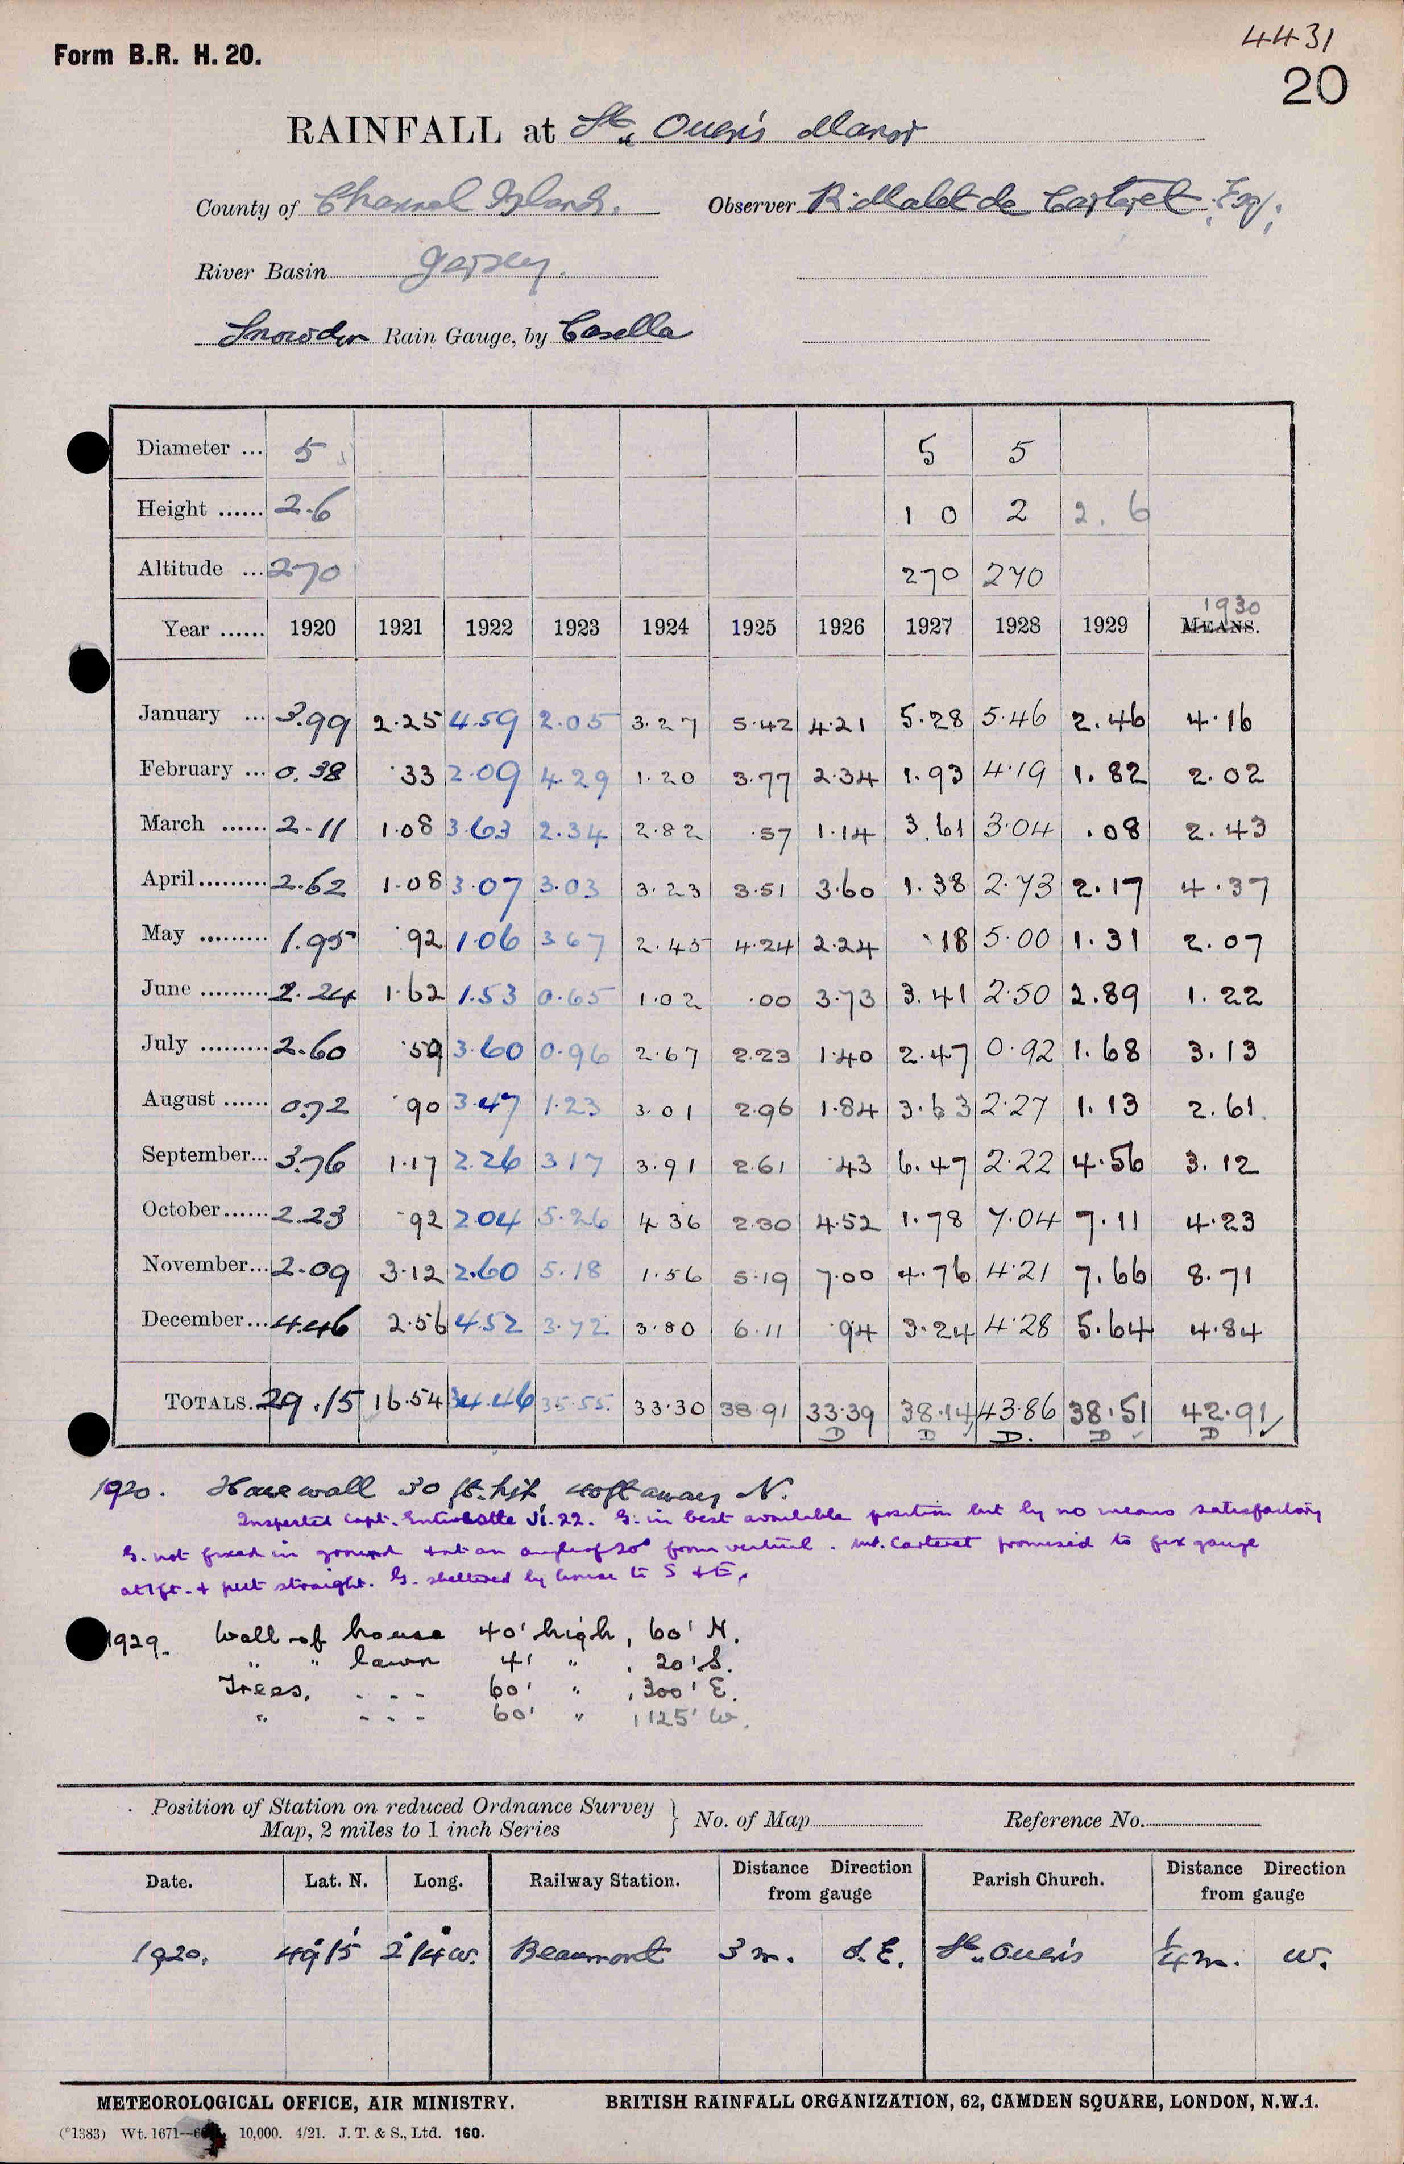 4431
Form B.R. H. 20.
20
RAINFALL at St. Ouen's Manor
County of Channel Islands. Observer R. Malet de Carteret Esq;
River Basin Jersey.
Snowdon Rain Gauge, by Casella
Diameter ... 5 5 5
Height ...... 2.6 1 0 2 2.6
Altitude ... 270 270 270
1930
Year ...... 1920 1921 1922 1923 1924 1925 1926 1927 1928 1929 MEANS.
January ... 3.99 2.25 4.59 2.05 3.27 5.42 4.21 5.28 5.46 2.46 4.16
February ... 0.38 .33 2.09 4.29 1.20 3.77 2.34 1.93 4.19 1.82 2.02
March ...... 2.11 1.08 3.63 2.34 2.82 .57 1.14 3.61 3.04 .08 2.43
April ......... 2.62 1.08 3.07 3.03 3.23 3.51 3.60 1.38 2.73 2.17 4.37
May ......... 1.95 .92 1.06 3.67 2.45 4.24 2.24 .18 5.00 1.31 2.07
June ......... 2.24 1.62 1.53 0.65 1.02 .00 3.73 3.41 2.50 2.89 1.22
July ......... 2.60 .59 3.60 0.96 2.67 2.23 1.40 2.47 0.92 1.68 3.13
August ...... 0.72 .90 3.47 1.23 3.01 2.96 1.84 3.63 2.27 1.13 2.61
September... 3.76 1.17 2.26 3.17 3.91 2.61 .43 6.47 2.22 4.56 3.12
October...... 2.23 .92 2.04 5.26 4.36 2.30 4.52 1.78 7.04 7.11 4.23
November... 2.09 3.12 2.60 5.18 1.56 5.19 7.00 4.76 4.21 7.66 8.71
December... 4.46 2.56 4.52 3.72 3.80 6.11 .94 3.24 4.28 5.64 4.84
TOTALS. 29.15 16.54 34.46 35.55. 33.30 38.91 33.39 38.14 43.86 38.51 42.91 ✓
D D D. D ✓ D
1920. House wall 30 ft. high, 40 ft away N.
Inspected Capt. VI. 22. G. in best available position but by no means satisfactory
G. not fixed in ground & at an angle of 20° from vertical. Mr. Carteret promised to fix gauge
at 1 ft. & put straight. G. sheltered by house to S & E.
1929. Wall of house 40' high, 60' N.
" " lawn 4' " , 20' S.
Trees, - - - 60' " , 300' E.
" - - - 60' " , 125' W.
Position of Station on reduced Ordnance Survey Map, 2 miles to 1 inch Series } No. of Map Reference No.
Date. Lat. N. Long. Railway Station. Distance Direction from gauge Parish Church. Distance Direction from gauge
1920. 49° 15' 2° 14' W. Beaumont 3 m. S.E. St. Ouen's 1/4 m. W.
METEOROLOGICAL OFFICE, AIR MINISTRY. BRITISH RAINFALL ORGANIZATION, 62, CAMDEN SQUARE, LONDON, N.W.1.
(*1383) Wt. 1671— 10,000. 4/21. J. T. & S., Ltd. 160.